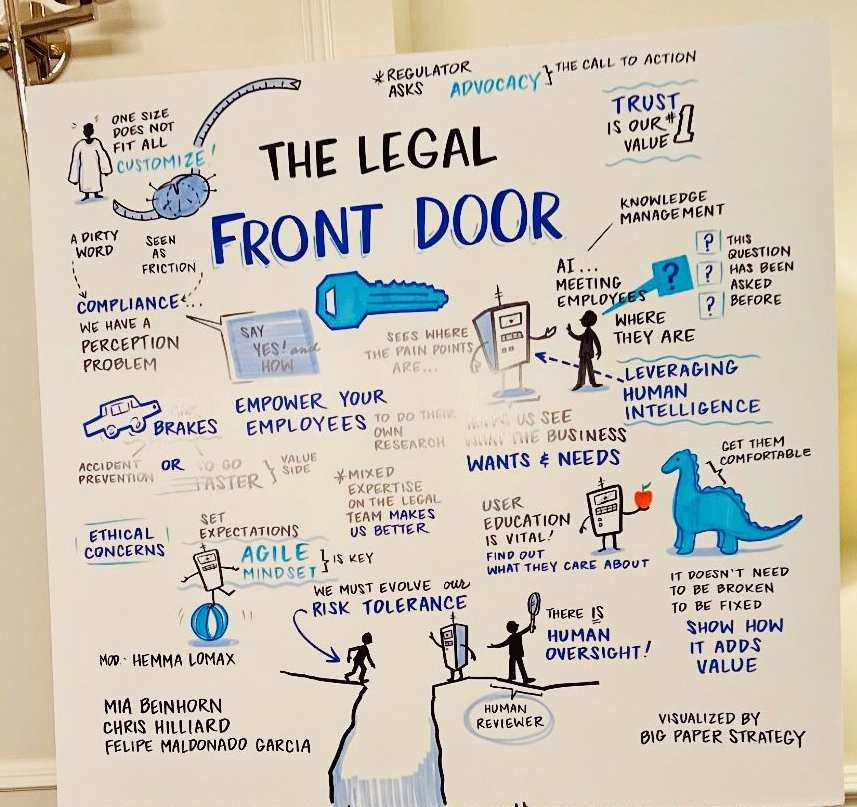 *REGULATOR
ASKS
ADVOCACY
THE CALL TO ACTION
ONE SIZE
DOES NOT
FIT ALL
CUSTOMIZE!
TRUST
IS OUR #1
VALUE
THE LEGAL
FRONT DOOR
KNOWLEDGE
MANAGEMENT
A DIRTY
WORD
SEEN
AS
FRICTION
COMPLIANCE...
WE HAVE A
PERCEPTION
PROBLEM
SAY
YES! and
HOW
SEES WHERE
THE PAIN POINTS
ARE...
AI...
MEETING
EMPLOYEES
WHERE
THEY ARE
?
?
?
?
THIS
QUESTION
HAS BEEN
ASKED
BEFORE
LEVERAGING
HUMAN
INTELLIGENCE
BRAKES
ACCIDENT
PREVENTION
OR
TO GO
FASTER
VALUE
SIDE
EMPOWER YOUR
EMPLOYEES
TO DO THEIR
OWN
RESEARCH
HELPS US SEE
WHAT THE BUSINESS
WANTS & NEEDS
*MIXED
EXPERTISE
ON THE LEGAL
TEAM MAKES
US BETTER
GET THEM
COMFORTABLE
ETHICAL
CONCERNS
SET
EXPECTATIONS
AGILE
MINDSET
IS KEY
USER
EDUCATION
IS VITAL!
FIND OUT
WHAT THEY CARE ABOUT
IT DOESN'T NEED
TO BE BROKEN
TO BE FIXED
SHOW HOW
IT ADDS
VALUE
WE MUST EVOLVE our
RISK TOLERANCE
THERE IS
HUMAN
OVERSIGHT!
HUMAN
REVIEWER
MOD: HEMMA LOMAX
MIA BEINHORN
CHRIS HILLIARD
FELIPE MALDONADO GARCIA
VISUALIZED BY
BIG PAPER STRATEGY